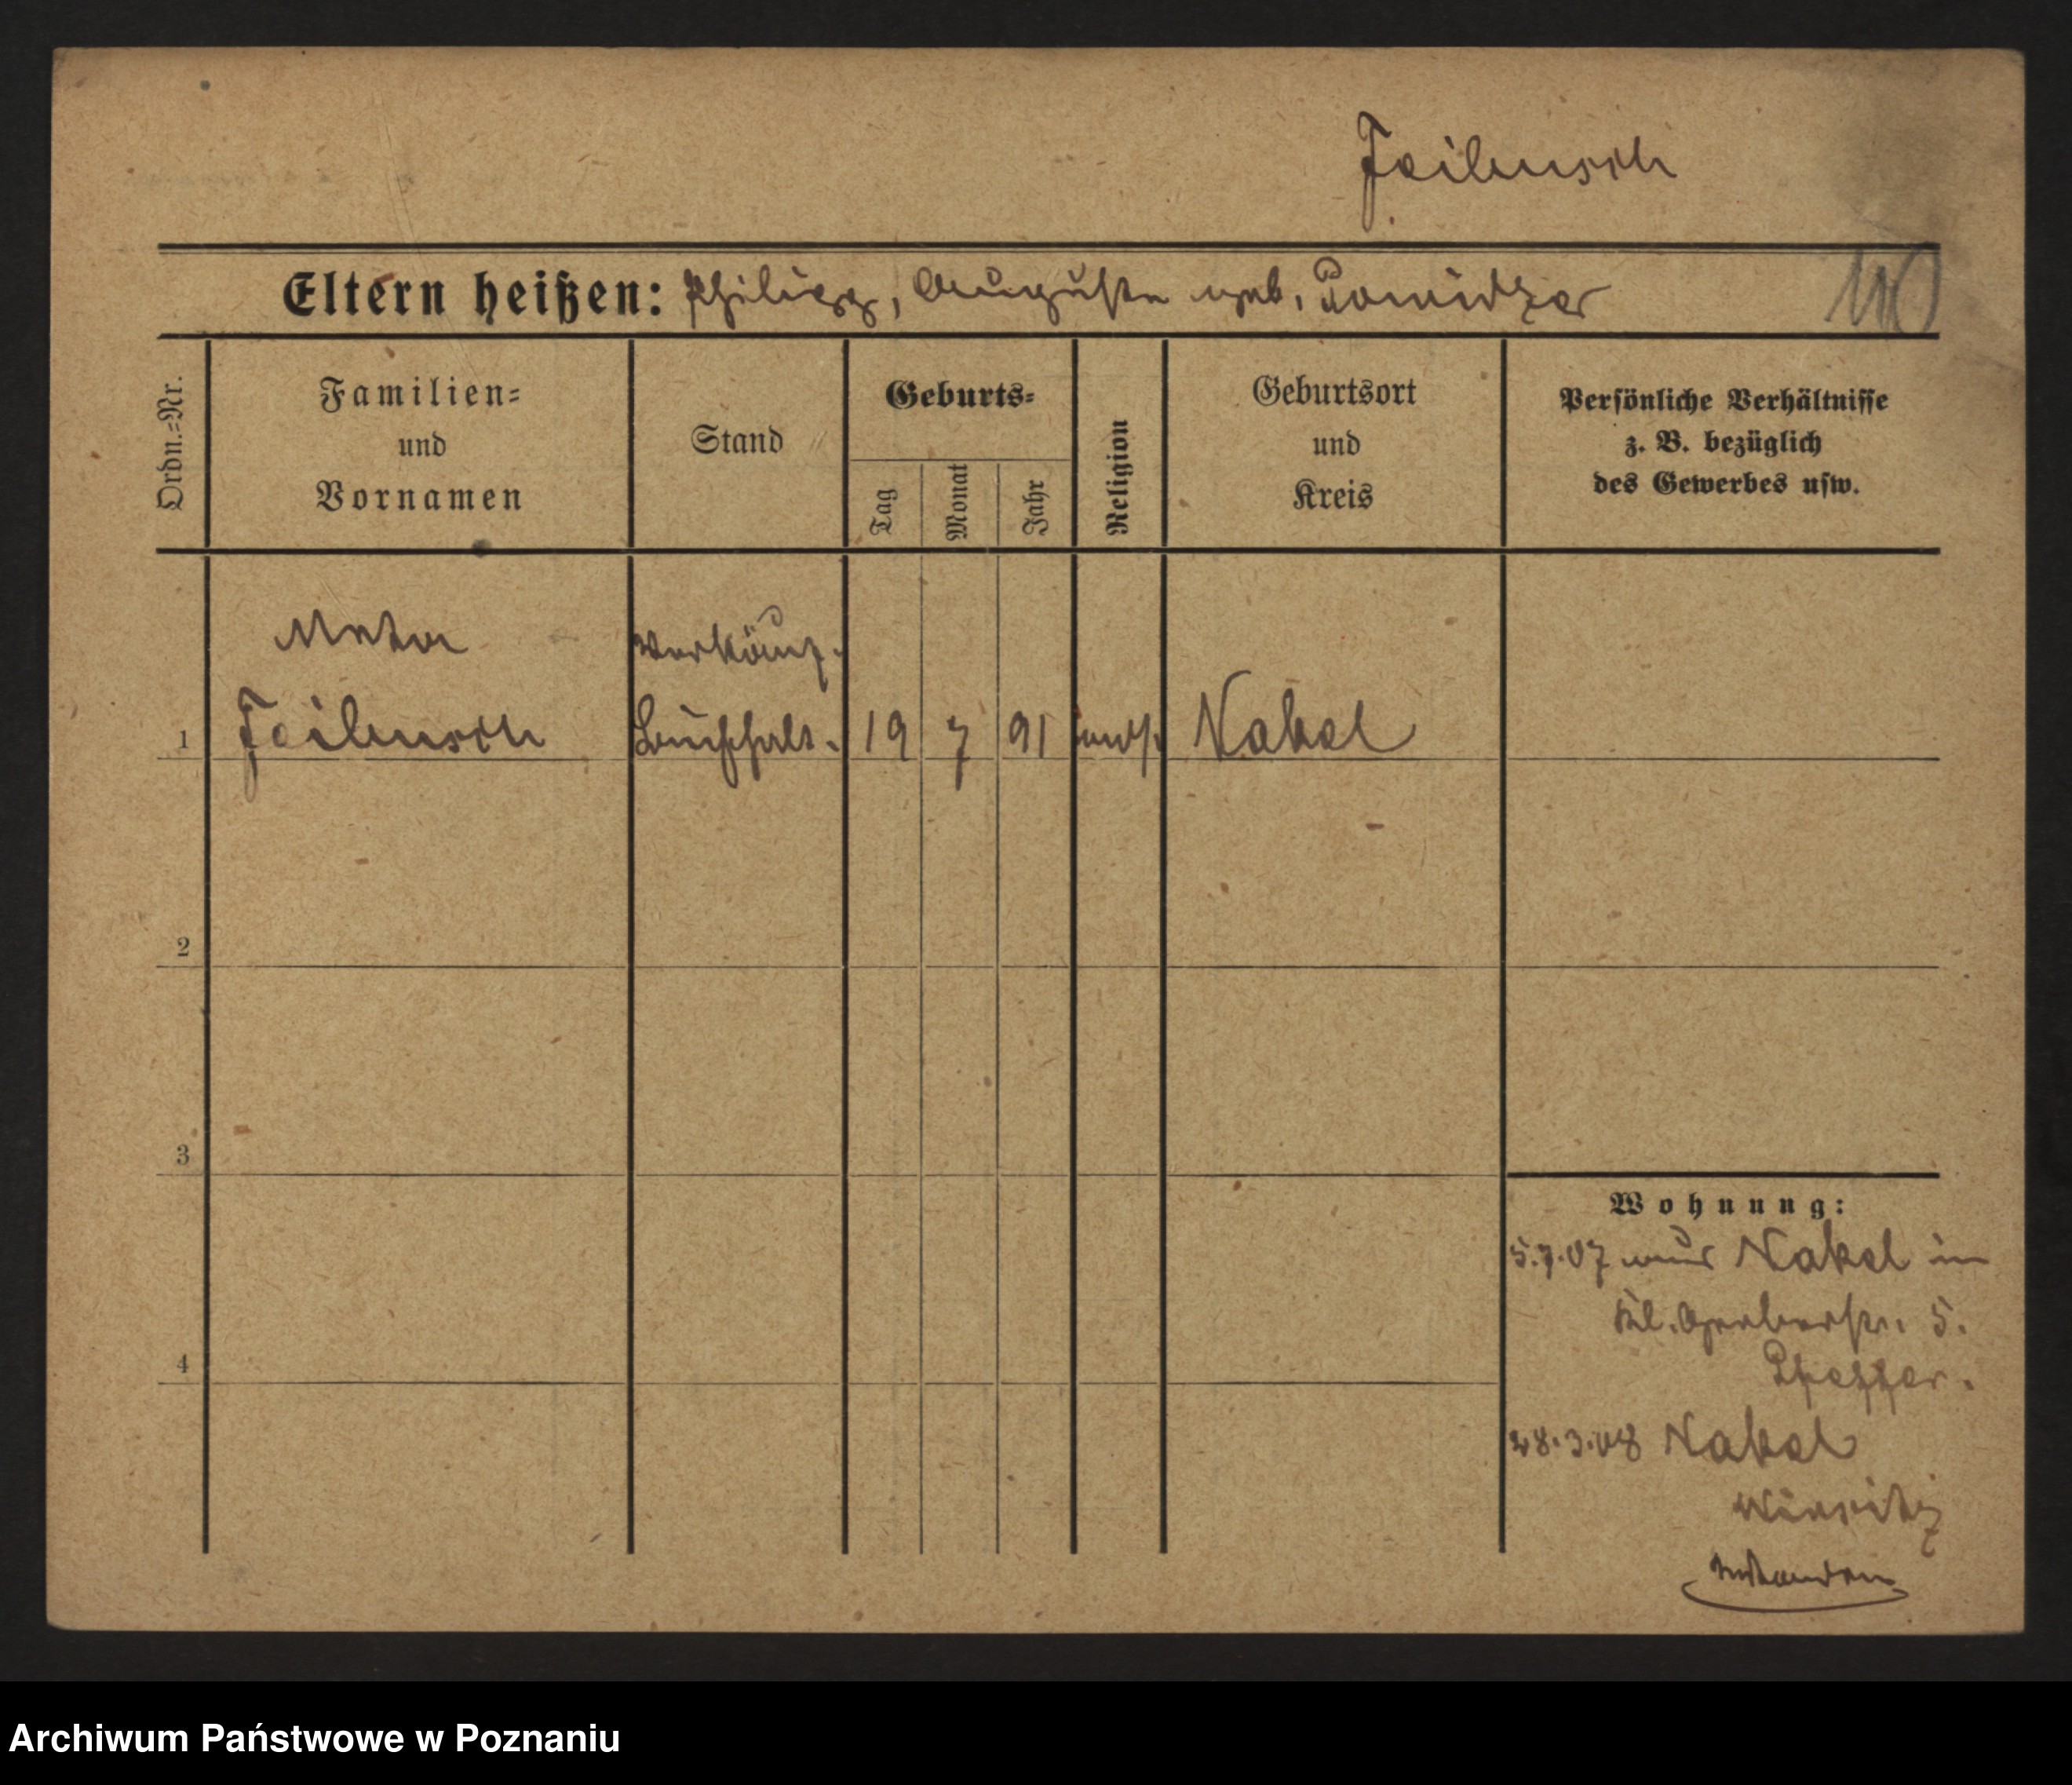 Feilusch
Eltern heißen: Philipp, Auguste geb.
Ordn.=Nr.
Familien=
und
Vornamen
Stand
Geburts=
Tag
Monat
Jahr
Religion
Geburtsort
und
Kreis
Persönliche Verhältnisse
z. B. bezüglich
des Gewerbes usw.
Meta
Feilusch
Verkäuf.
Buchhalt.
1
19
7
91
mos.
Nakel
2
3
4
Wohnung:
5.7.07 aus Nakel in
Kl. Gerberstr. 5.
Pfeffer.
28.3.08 Nakel
Archiwum Państwowe w Poznaniu